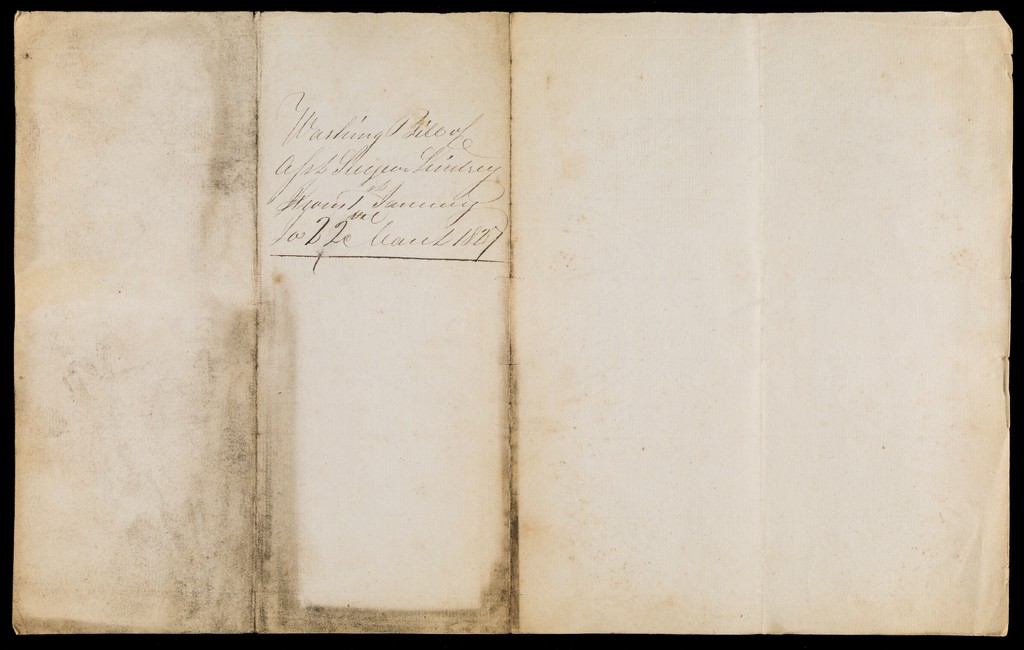 Washing Bill of
Asst Surgeon Lindsey
from 1st January
to 22nd March 1827